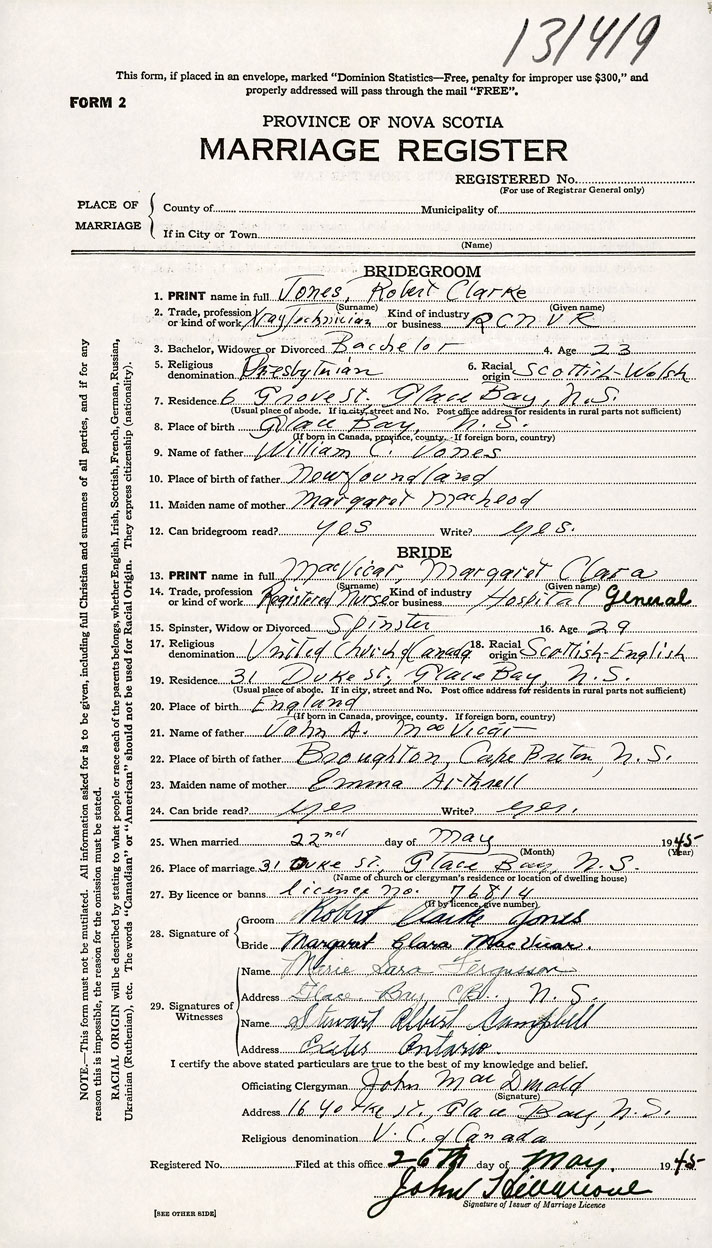 131419
This form, if placed in an envelope, marked "Dominion Statistics—Free, penalty for improper use $300," and
properly addressed will pass through the mail "FREE".
FORM 2
PROVINCE OF NOVA SCOTIA
MARRIAGE REGISTER
REGISTERED No.
(For use of Registrar General only)
PLACE OF MARRIAGE
County of Municipality of
If in City or Town
(Name)
BRIDEGROOM
1. PRINT name in full Jones, Robert Clarke
(Surname) (Given name)
2. Trade, profession or kind of work Xray Technician Kind of industry or business RCNVR
3. Bachelor, Widower or Divorced Bachelor 4. Age 23
5. Religious denomination Presbytnian 6. Racial origin Scottish-Welsh
7. Residence 6 Grove st. Glace Bay, N.S.
(Usual place of abode. If in city, street and No. Post office address for residents in rural parts not sufficient)
8. Place of birth Glace Bay, N.S.
(If born in Canada, province, county. If foreign born, country)
9. Name of father William C. Jones
10. Place of birth of father Newfoundland
11. Maiden name of mother Margaret MacLeod
12. Can bridegroom read? yes Write? yes.
BRIDE
13. PRINT name in full MacVicar, Margaret Clara
(Surname) (Given name)
14. Trade, profession or kind of work Registered Nurse Kind of industry or business Hospital General
15. Spinster, Widow or Divorced Spinster 16. Age 29
17. Religious denomination United Church of Canada 18. Racial origin Scottish-English
19. Residence 31 Duke st, Glace Bay, N.S.
(Usual place of abode. If in city, street and No. Post office address for residents in rural parts not sufficient)
20. Place of birth England
(If born in Canada, province, county. If foreign born, country)
21. Name of father John A. MacVicar
22. Place of birth of father Broughton, Cape Breton, N.S.
23. Maiden name of mother Emma
24. Can bride read? yes Write? yes.
25. When married 22nd day of May 1945
(Month) (Year)
26. Place of marriage 31 Duke st. Glace Bay, N.S.
(Name of church or clergyman's residence or location of dwelling house)
27. By licence or banns licence no. 76814
(If by licence, give number)
28. Signature of
Groom Robert Clarke Jones
Bride Margaret Clara MacVicar.
29. Signatures of Witnesses
Name Marie Sara Fergusson
Address Glace Bay, C.B., N.S.
Name Stewart Albert Campbell
Address Exeter Ontario.
I certify the above stated particulars are true to the best of my knowledge and belief.
Officiating Clergyman John MacDonald
(Signature)
Address 16 Yorke st., Glace Bay, N.S.
Religious denomination U.C. of Canada
Registered No. Filed at this office 26th day of May. 1945
John
Signature of Issuer of Marriage Licence
[SEE OTHER SIDE]
NOTE.—This form must not be mutilated. All information asked for is to be given, including full Christian and surnames of all parties, and if for any
reason this is impossible, the reason for the omission must be stated.
RACIAL ORIGIN will be described by stating to what people or race each of the parents belongs, whether English, Irish, Scottish, French, German, Russian,
Ukrainian (Ruthenian), etc. The words "Canadian" or "American" should not be used for Racial Origin. They express citizenship (nationality).